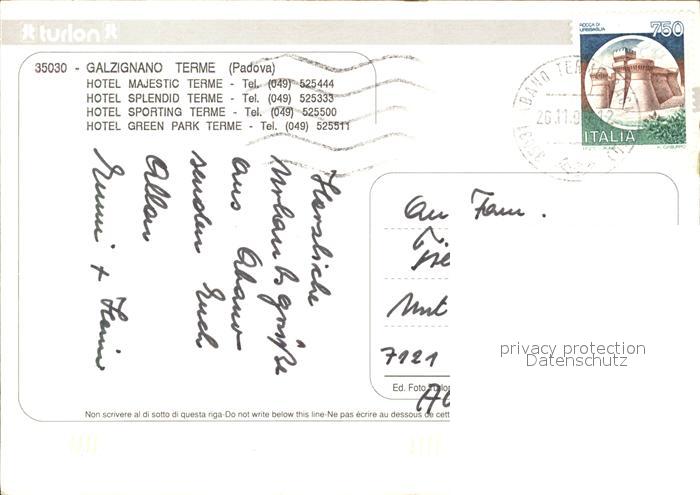 turlon
35030 - GALZIGNANO TERME (Padova)
HOTEL MAJESTIC TERME - Tel. (049) 525444
HOTEL SPLENDID TERME - Tel. (049) 525333
HOTEL SPORTING TERME - Tel. (049) 525500
HOTEL GREEN PARK TERME - Tel. (049) 525511
ROCCA DI
URBISAGLIA
750
ITALIA
26.11.
Herzliche
Urlaubsgrüße
aus Abano
senden Euch
Allen
Emmi + Heini
An Fam.
7121
privacy protection
Datenschutz
Ed. Foto Turlon
Non scrivere al di sotto di questa riga-Do not write below this line-Ne pas écrire au dessous de cett